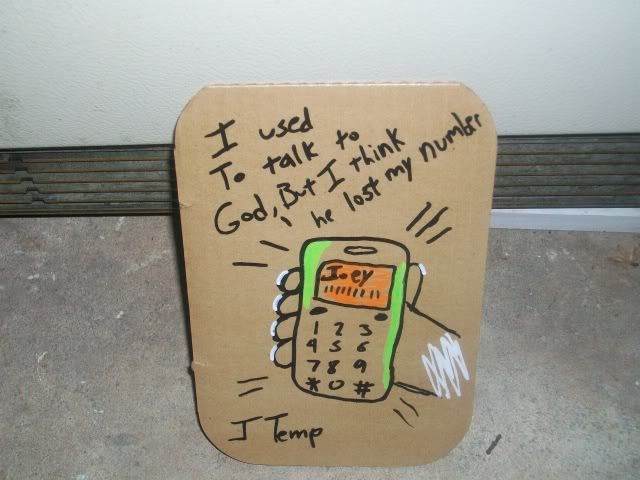 I used
To talk to
God, But I think
he lost my number
Joey
1 2 3
4 5 6
7 8 9
* 0 #
J Temp